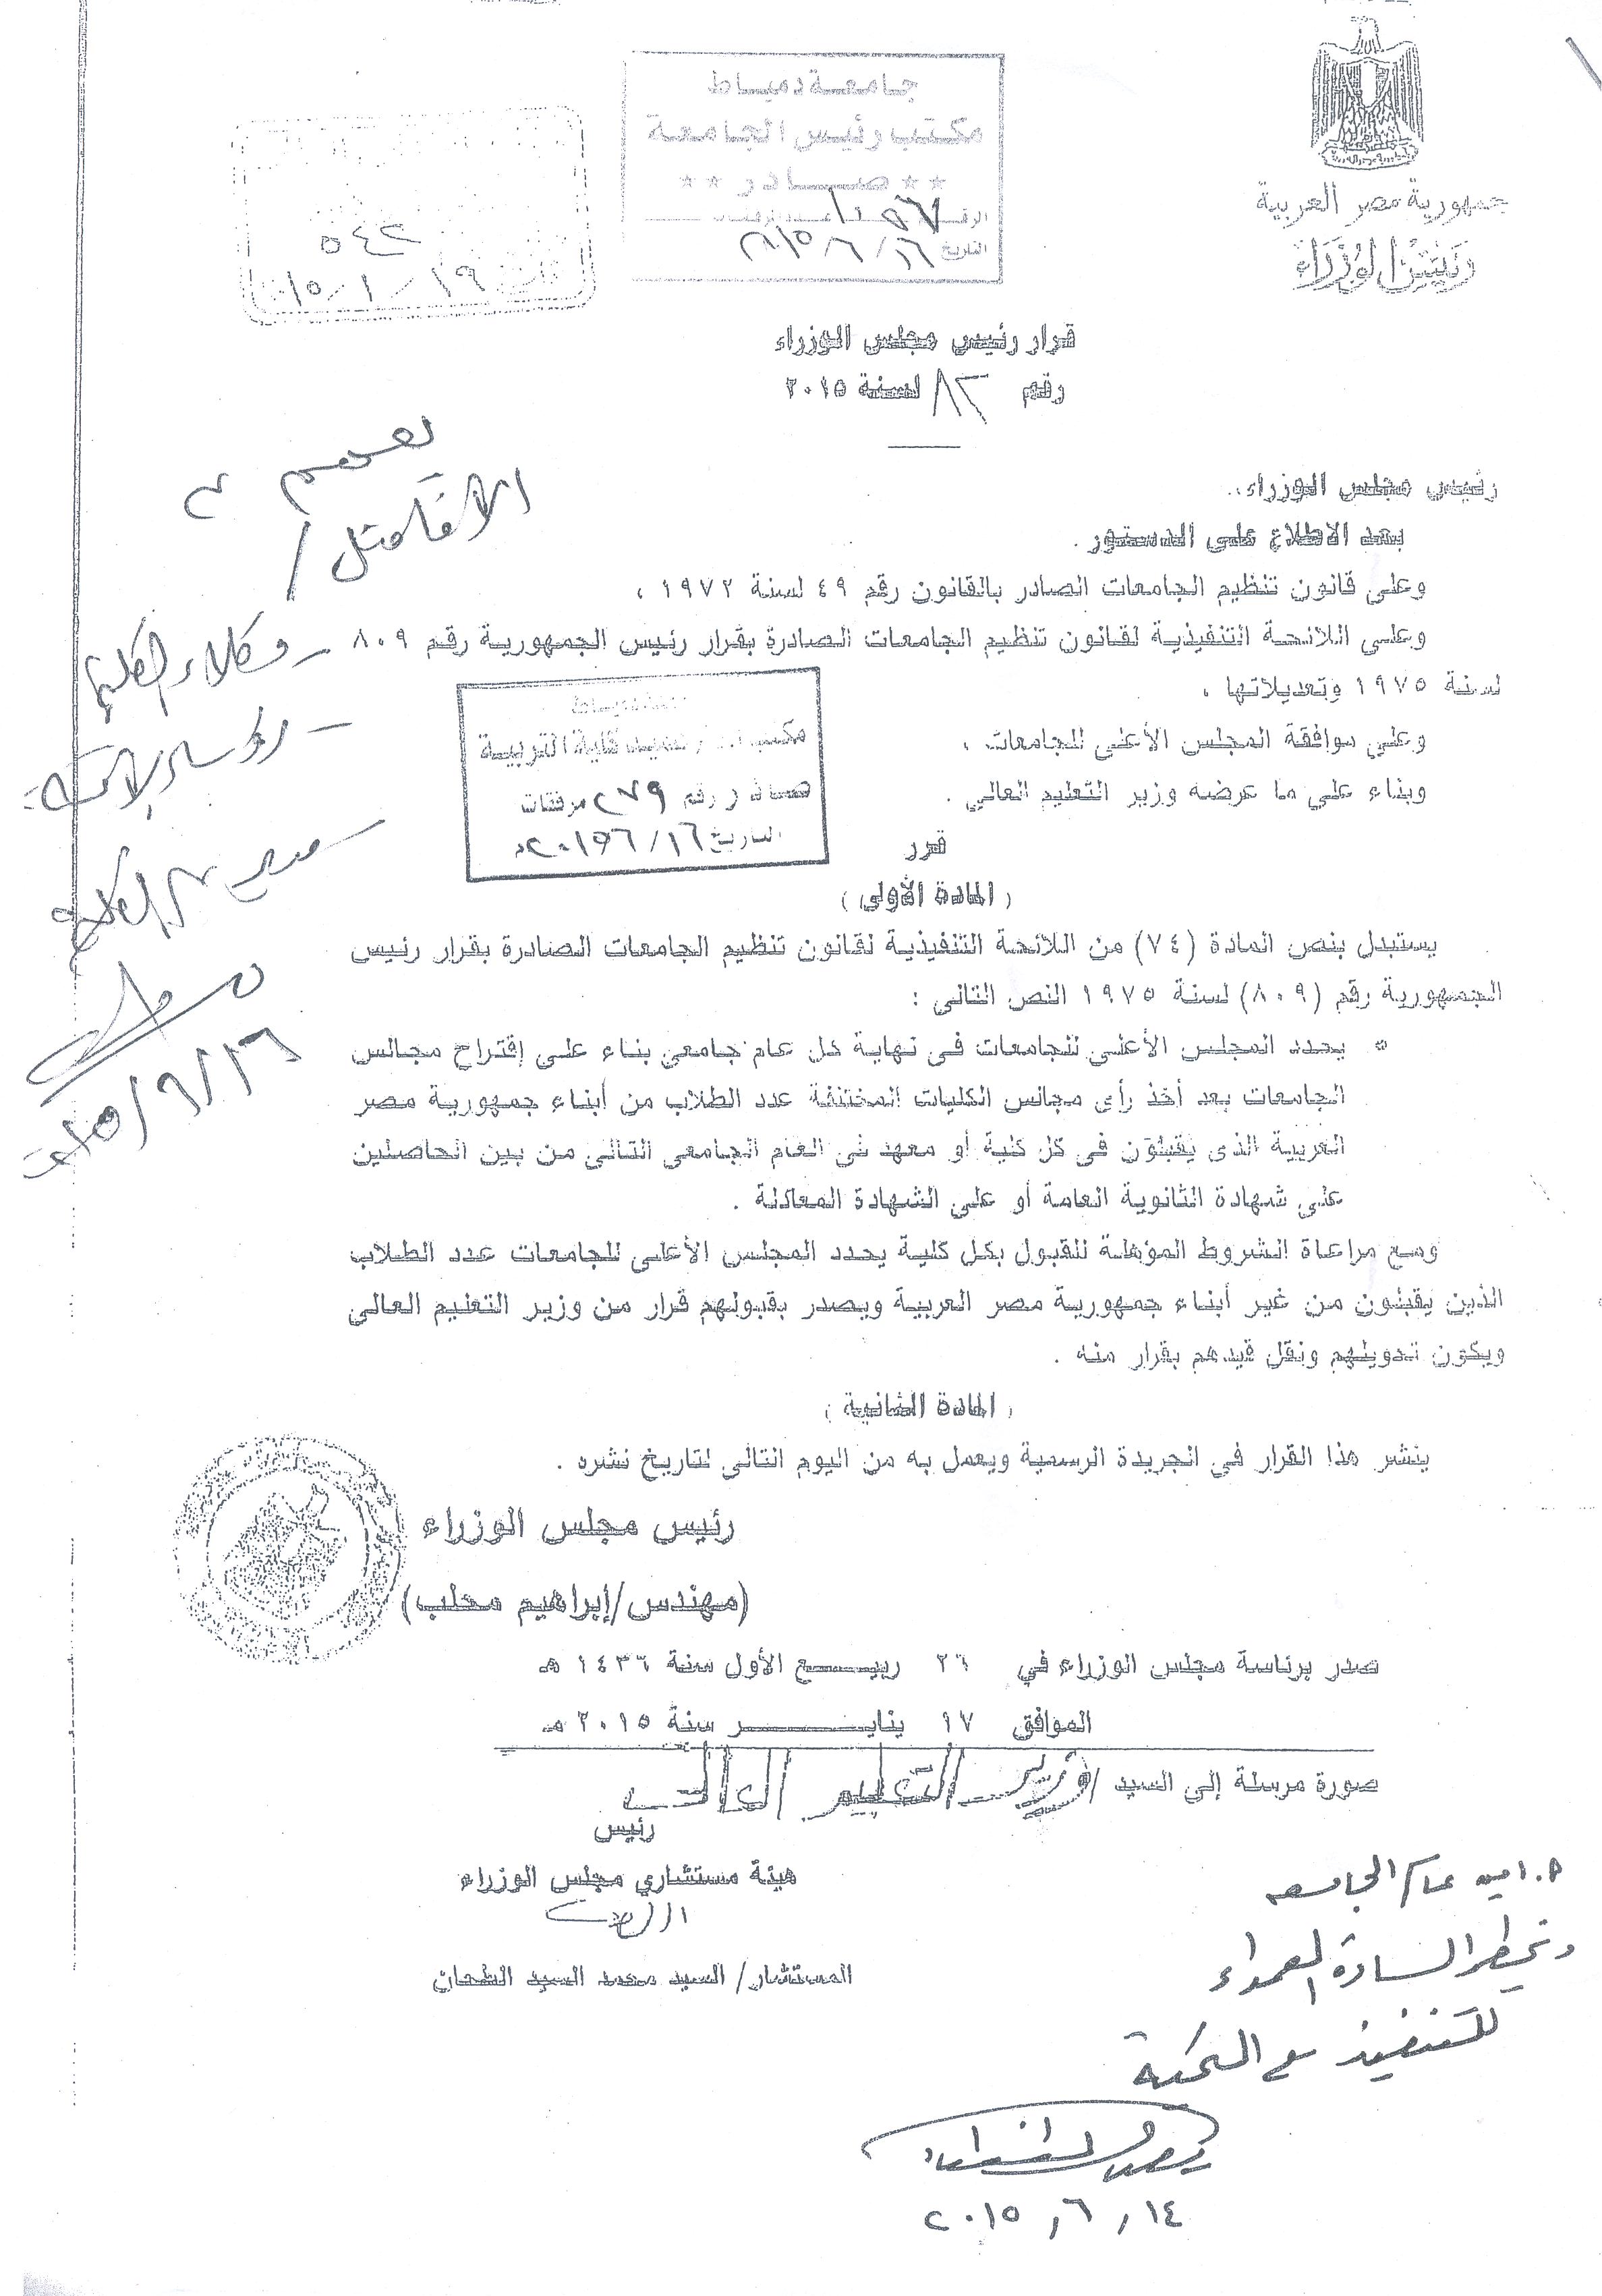 جمهورية مصر العربية
رئيس الوزراء
جامعة دمياط
مكتب رئيس الجامعة
** صادر **
الرقم ١٠٥٧
التاريخ ٢٠١٥/٦/١٦
٥٤٢
١٥/١/١٩
قرار رئيس مجلس الوزراء
رقم ٨٣ لسنة ٢٠١٥
رئيس مجلس الوزراء،
بعد الاطلاع على الدستور .
وعلى قانون تنظيم الجامعات الصادر بالقانون رقم ٤٩ لسنة ١٩٧٢ ،
وعلى اللائحة التنفيذية لقانون تنظيم الجامعات الصادرة بقرار رئيس الجمهورية رقم ٨٠٩
لسنة ١٩٧٥ وتعديلاتها ،
وعلى موافقة المجلس الأعلى للجامعات ،
وبناء على ما عرضه وزير التعليم العالي .
قرر
( المادة الأولى )
يستبدل بنص المادة (٧٤) من اللائحة التنفيذية لقانون تنظيم الجامعات الصادرة بقرار رئيس
الجمهورية رقم (٨٠٩) لسنة ١٩٧٥ النص التالى :
• يحدد المجلس الأعلى للجامعات فى نهاية كل عام جامعى بناء على إقتراح مجالس
الجامعات بعد أخذ رأى مجالس الكليات المختلفة عدد الطلاب من أبناء جمهورية مصر
العربية الذى يقبلون فى كل كلية أو معهد فى العام الجامعى التالى من بين الحاصلين
على شهادة الثانوية العامة أو على الشهادة المعادلة .
ومع مراعاة الشروط المؤهلة للقبول بكل كلية يحدد المجلس الأعلى للجامعات عدد الطلاب
الذين يقبلون من غير أبناء جمهورية مصر العربية ويصدر بقبولهم قرار من وزير التعليم العالى
ويكون تحويلهم ونقل قيدهم بقرار منه .
( المادة الثانية )
ينشر هذا القرار فى الجريدة الرسمية ويعمل به من اليوم التالى لتاريخ نشره .
رئيس مجلس الوزراء
(مهندس/إبراهيم محلب)
صدر برئاسة مجلس الوزراء في ٢٦ ربيـــع الأول سنة ١٤٣٦ هـ
الموافق ١٧ ينايـــر سنة ٢٠١٥ مـ
صورة مرسلة إلى السيد / وزير التعليم العالى
رئيس
هيئة مستشاري مجلس الوزراء
المستشار/ السيد محمد السيد الطحان
مكتب أ.د/ عميد كلية التربية
صادر رقم ٢٧٩ مرفقات
التاريخ ٢٠١٥/٦/١٦
- وكلاء الكلية
- مدير الكلية
٢٠١٥/٦/١٦
أ. أمين عام الجامعة
وتخطر السادة العمداء
للتنفيذ مع التحية
٢٠١٥/٦/١٤